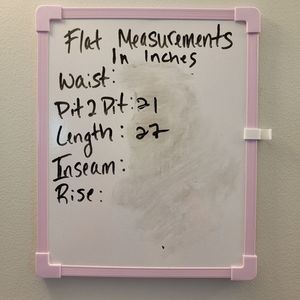 Flat Measurements
In Inches
Waist:
Pit 2 Pit: 21
Length: 27
Inseam:
Rise: